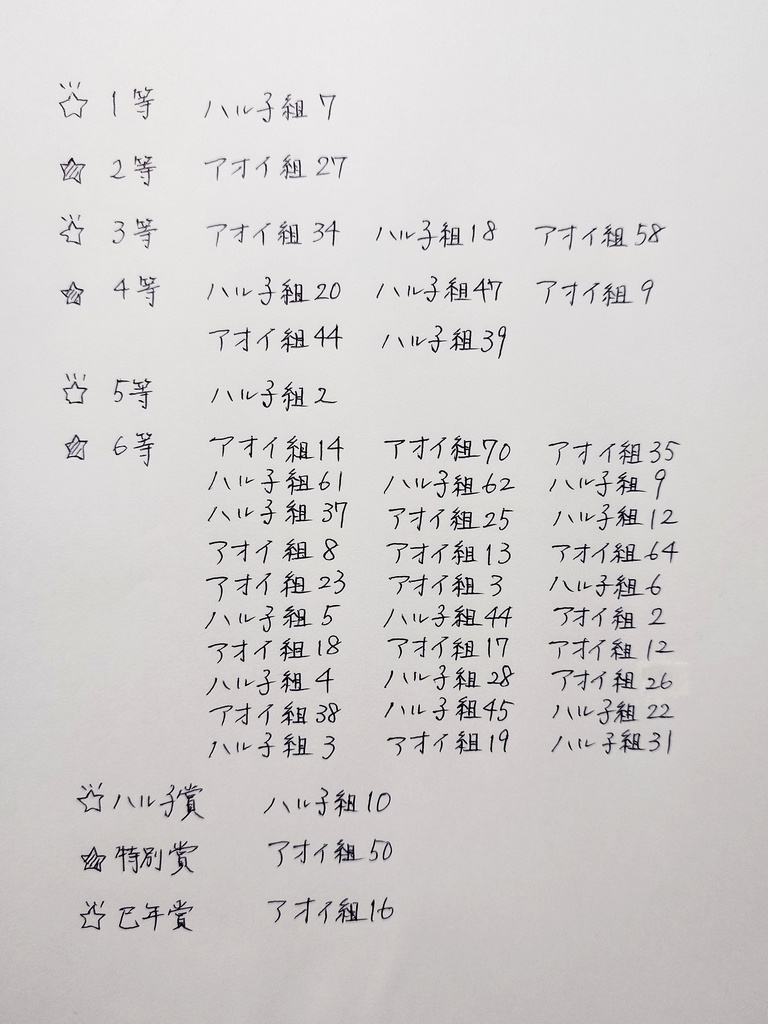 ☆ 1等 ハル子組 7
★ 2等 アオイ組 27
☆ 3等 アオイ組 34 ハル子組 18 アオイ組 58
★ 4等 ハル子組 20 ハル子組 47 アオイ組 9
アオイ組 44 ハル子組 39
☆ 5等 ハル子組 2
★ 6等 アオイ組 14 アオイ組 70 アオイ組 35
ハル子組 61 ハル子組 62 ハル子組 9
ハル子組 37 アオイ組 25 ハル子組 12
アオイ組 8 アオイ組 13 アオイ組 64
アオイ組 23 アオイ組 3 ハル子組 6
ハル子組 5 ハル子組 44 アオイ組 2
アオイ組 18 アオイ組 17 アオイ組 12
ハル子組 4 ハル子組 28 アオイ組 26
アオイ組 38 ハル子組 45 ハル子組 22
ハル子組 3 アオイ組 19 ハル子組 31
☆ ハル子賞 ハル子組 10
★ 特別賞 アオイ組 50
☆ 巳年賞 アオイ組 16